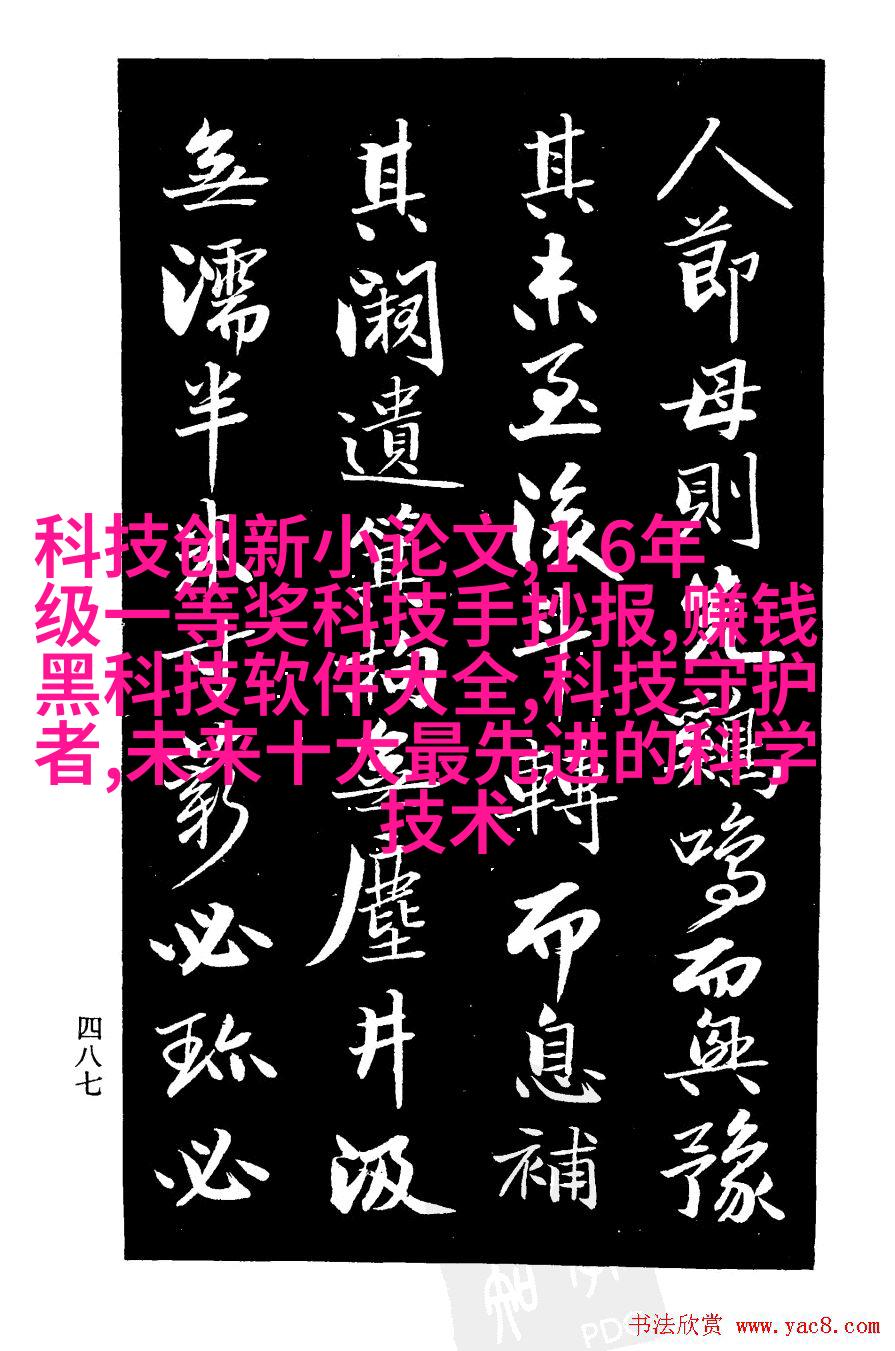 人節母則先鷄鳴而興豫
其未至後斗轉而息補
其闕遺無塵井汲
無濡半菽寸薪必珍必
四八七
科技创新小论文,1 6年
级一等奖科技手抄报,赚钱
黑科技软件大全,科技守护
者,未来十大最先进的科学
技术
书法欣赏 www.yac8.com